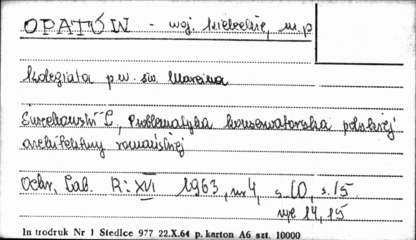 OPATÓW - woj. kieleckie, m.p
Kolegiata p.w. św. Marcina
Ciechanowski L, Problematyka konserwatorska polskiej
architektury romańskiej
Ochr. Zab. R: XVI 1963, nr 4, s.15
ryc 14, 15
In trodruk Nr 1 Siedlce 977 22.X.64 p. karton A6 szt. 10000